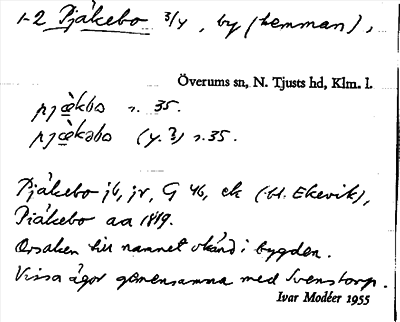 1-2 Pjäkebo 3/4, by (hemman),
Överums sn, N. Tjusts hd, Klm. l.
pjæ̀kbo s. 35.
pjæ̀kəbo (y. ?) s. 35.
Pjäkebo jb, jr, G 46, ek (bl. Ekevik),
Piäkebo aa 1819.
Orsaken till namnet okänd i bygden.
Vissa ägor gemensamma med Svenstorp.
Ivar Modéer 1955